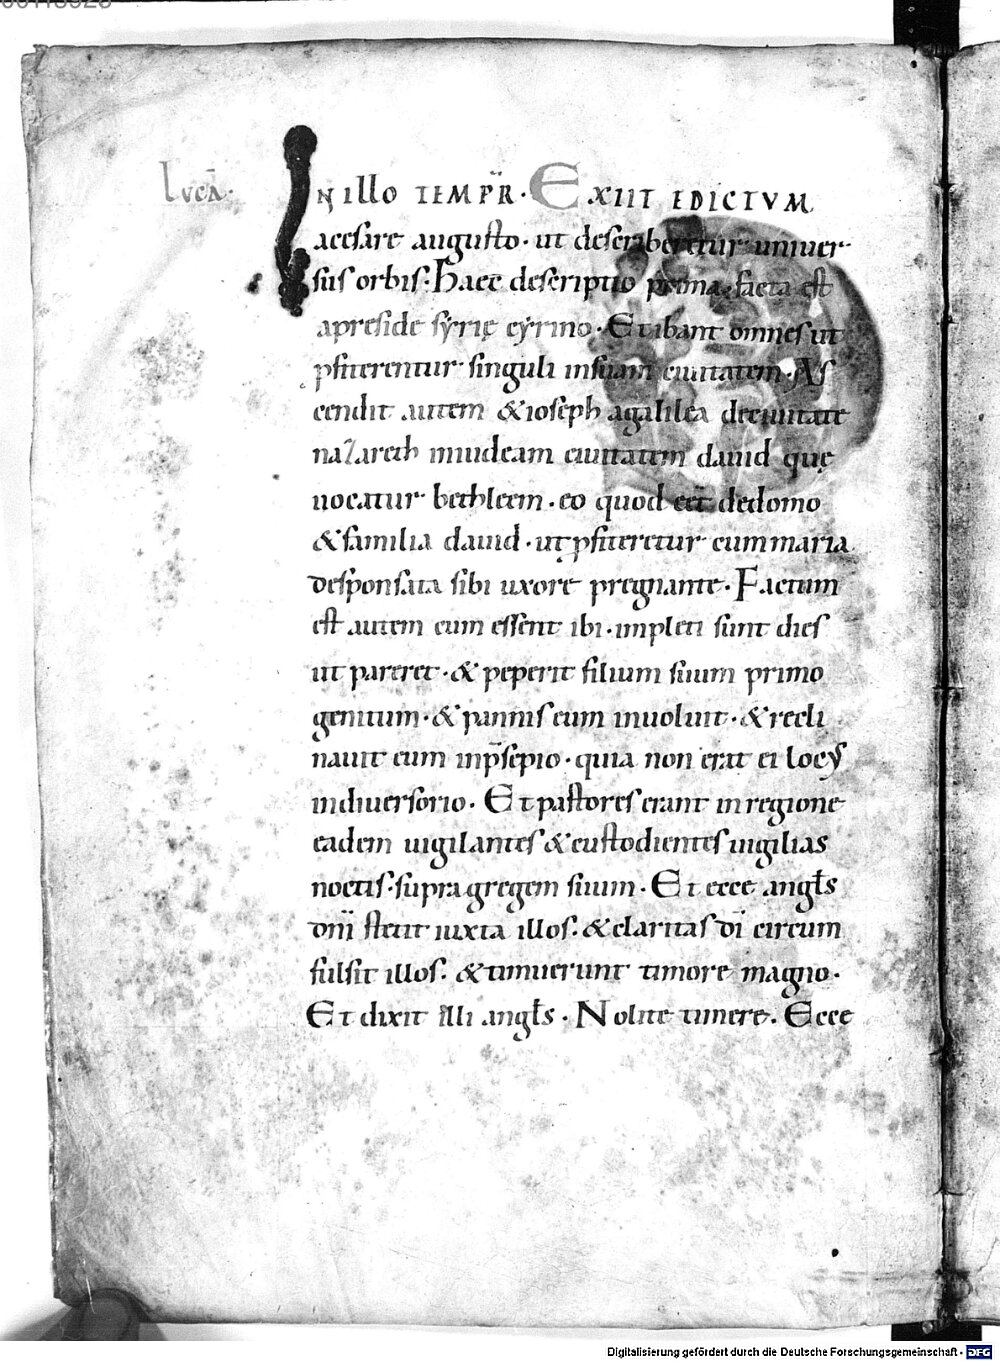 Lucā.
IN illo TEMPR̄. EXIIT EDICTUM
a cesare augusto. ut describeretur univer
sus orbis. Haec descriptio prima facta est
a preside syrię cyrino. Et ibant omnes ut
ꝓfiterentur singuli in suam civitatem. As
cendit autem & ioseph a galilea de civitate
nazareth in iudeam civitatem david quę
vocatur bethleem. eo quod eēt de domo
& familia david. ut ꝓfiteretur cum maria
desponsata sibi uxore pregnante. Factum
est autem cum essent ibi. impleti sunt dies
ut pareret. & peperit filium suum primo
genitum. & pannis eum involuit. & recli
navit eum in p̄sepio. quia non erat ei locꝰ
in diversorio. Et pastores erant in regione
eadem vigilantes & custodientes vigilias
noctis. supra gregem suum. Et ecce angl̄s
dn̄i stetit iuxta illos. & claritas dī circum
fulsit illos. & timuerunt timore magno.
Et dixit illi angl̄s. Nolite timere. Ecce
Digitalisierung gefördert durch die Deutsche Forschungsgemeinschaft - DFG